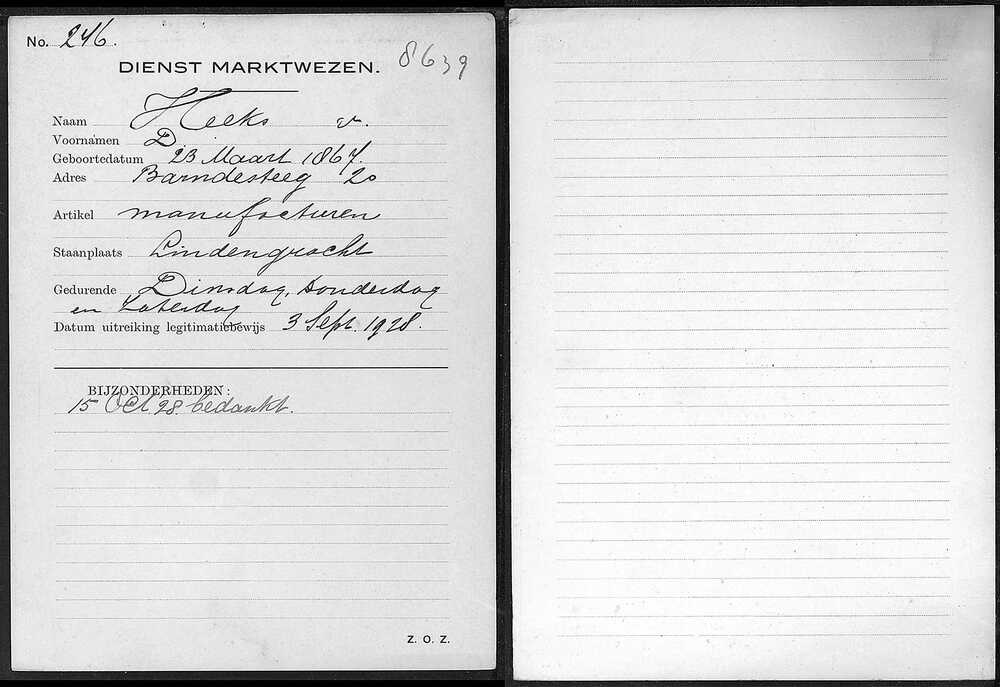 No. 246.
8639
DIENST MARKTWEZEN.
Naam Heeks v.
Voornamen D
Geboortedatum 23 Maart 1867.
Adres Barndesteeg 20
Artikel manufacturen
Staanplaats Lindengracht
Gedurende Dinsdag, Donderdag
en Zaterdag
Datum uitreiking legitimatiebewijs 3 Sept. 1928.
BIJZONDERHEDEN:
15 Oct 28 bedankt.
Z. O. Z.